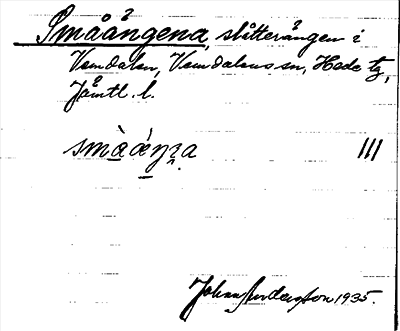 Småängena, slåtterängen i
Vemdalen, Vemdalens sn, Hede tg,
Jämtl. l.
smàáŋɪ̯a III
Johan Andersson 1935.